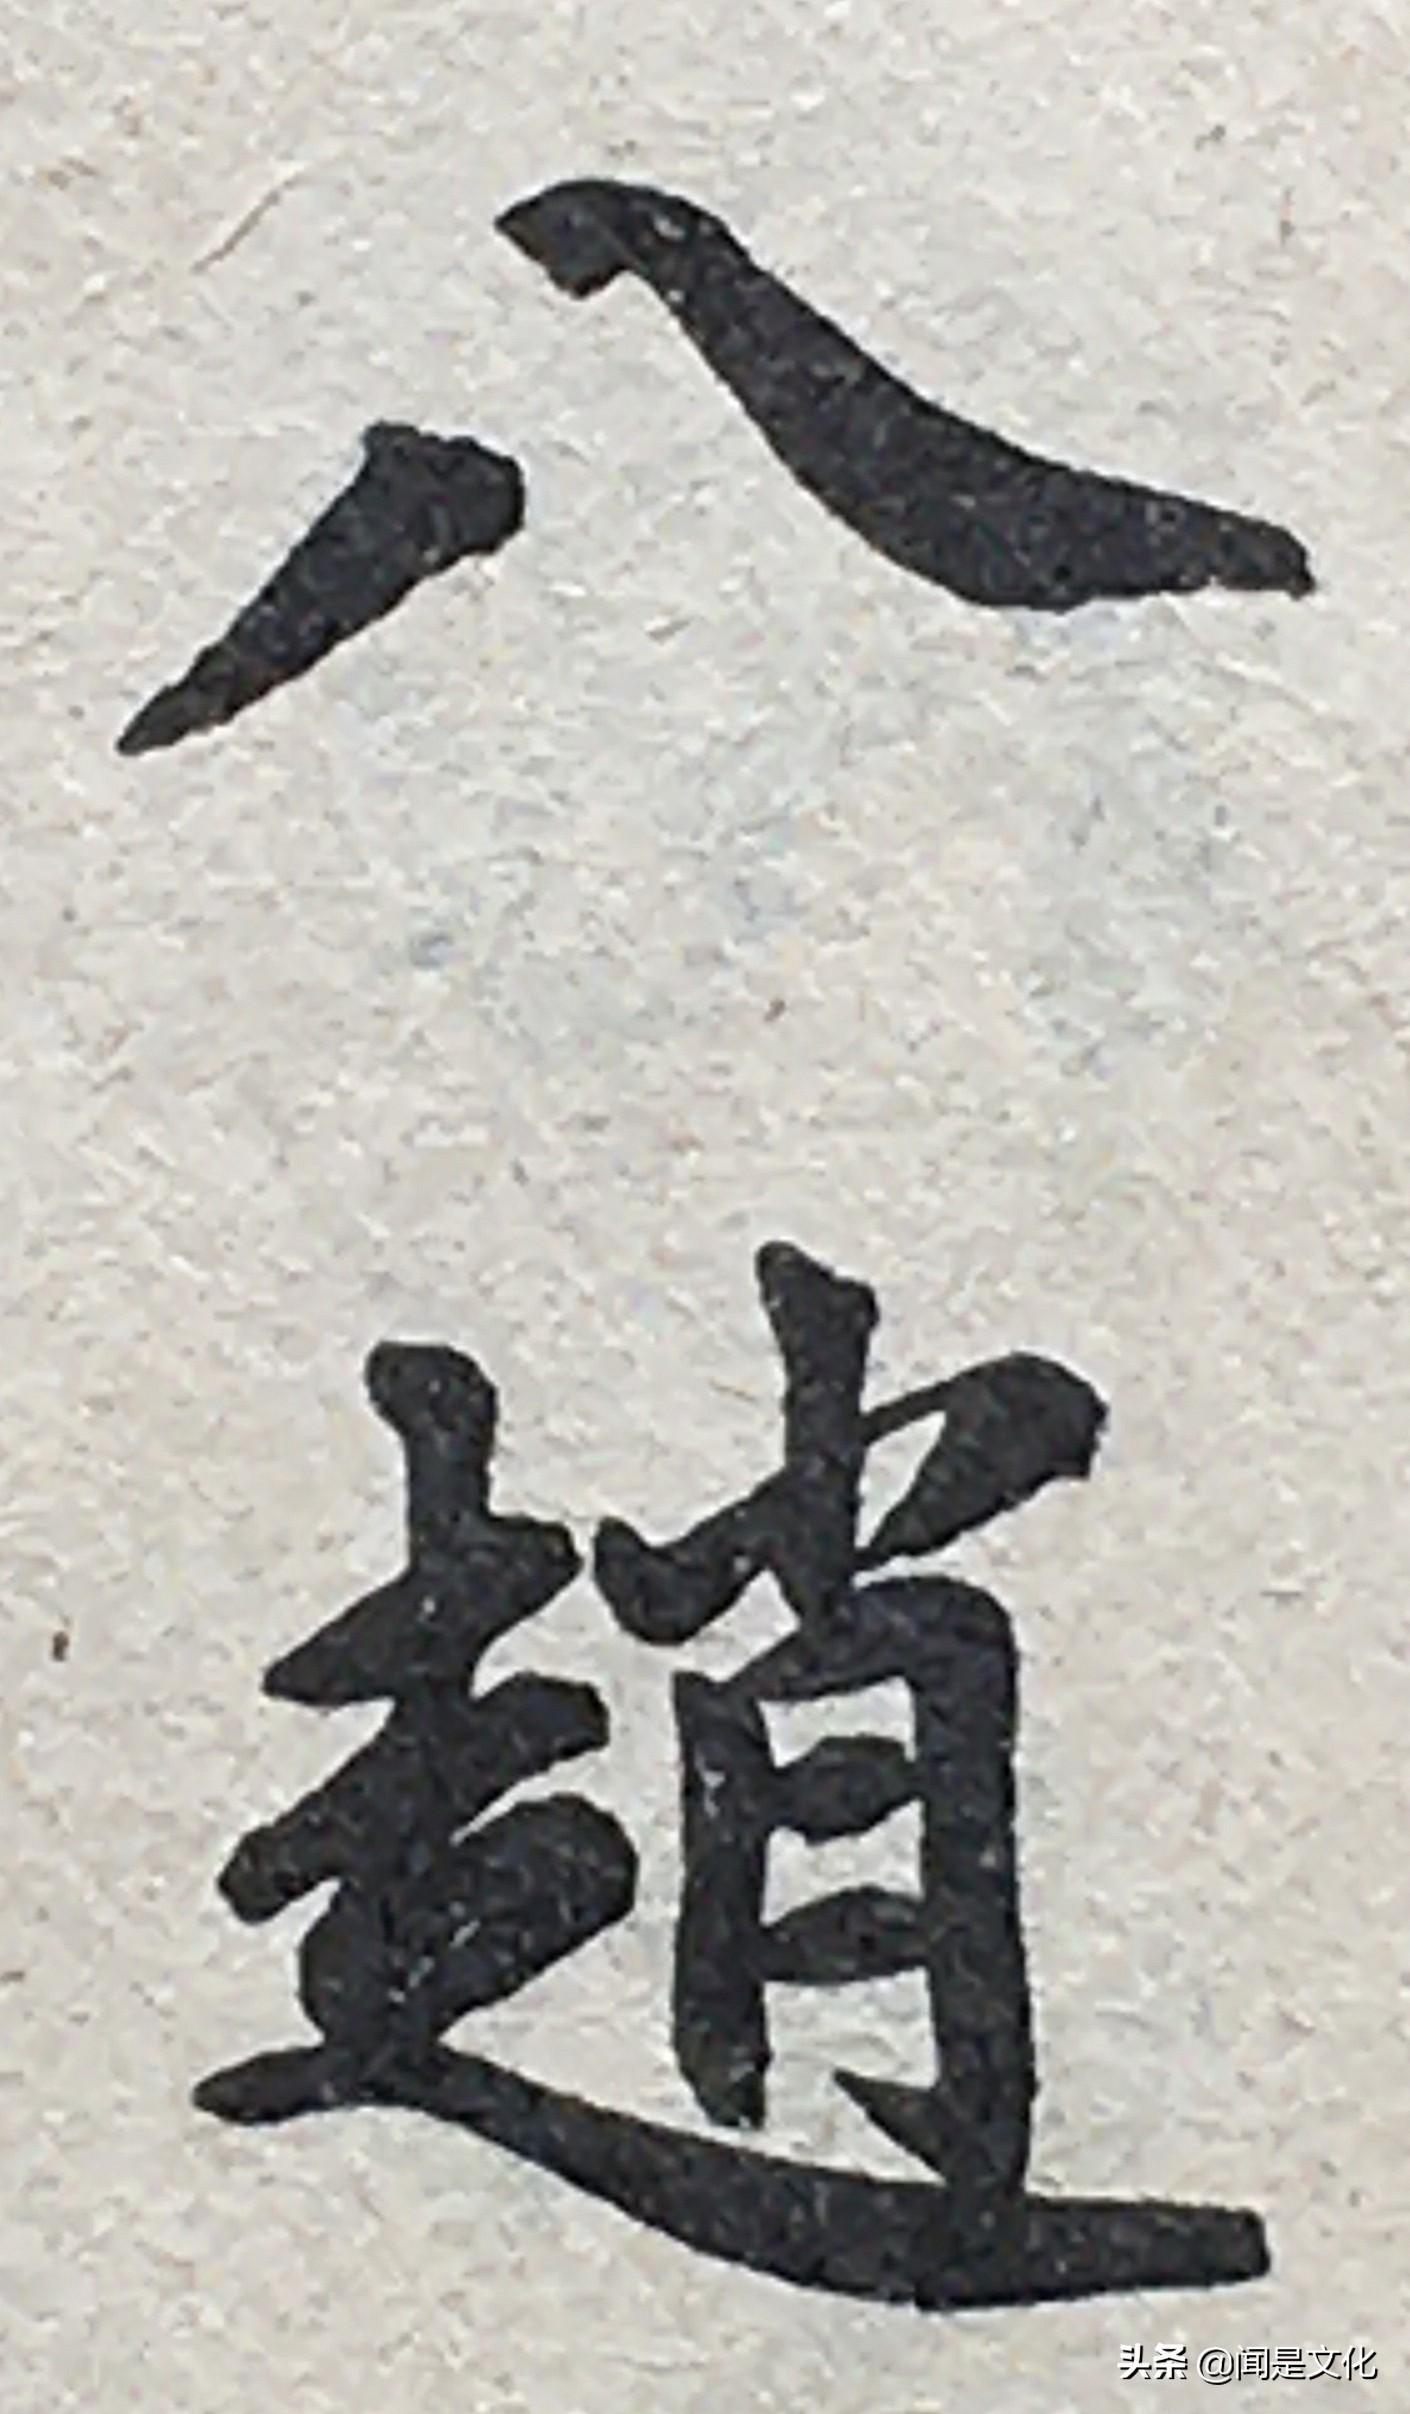 八
趙
头条 @闻是文化